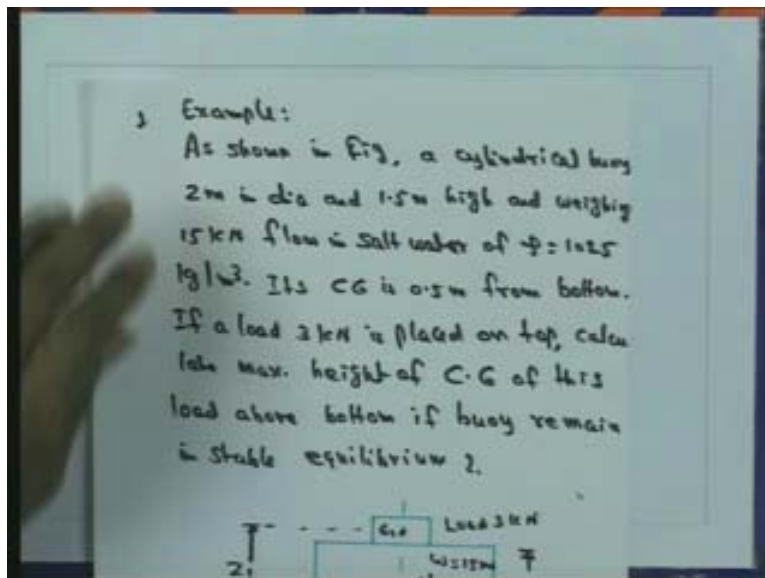 Example:
As shown in Fig, a cylindrical buoy
2m in dia and 1.5m high and weighing
15 kN flow in salt water of ρ = 1025
kg/m³. Its CG is 0.5m from bottom.
If a load 3 kN is placed on top, calcu
late max. height of C.G of this
load above bottom if buoy remain
in stable equilibrium ?.
Load 3 kN
Z₁